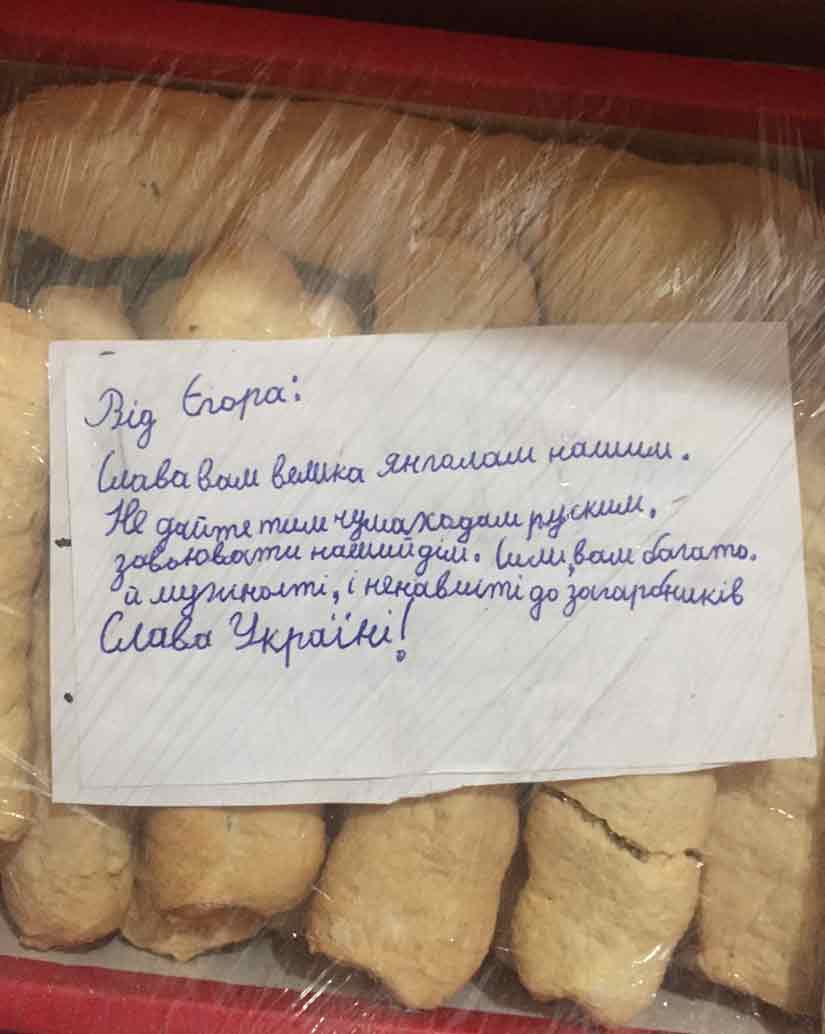 Від Єгора:
Слава вам велика янголам нашим.
Не дайте тим чумаходам руским,
завоювати наший дім. Сили, вам багато.
й мужності, і ненависті до загарбників
Слава Україні!